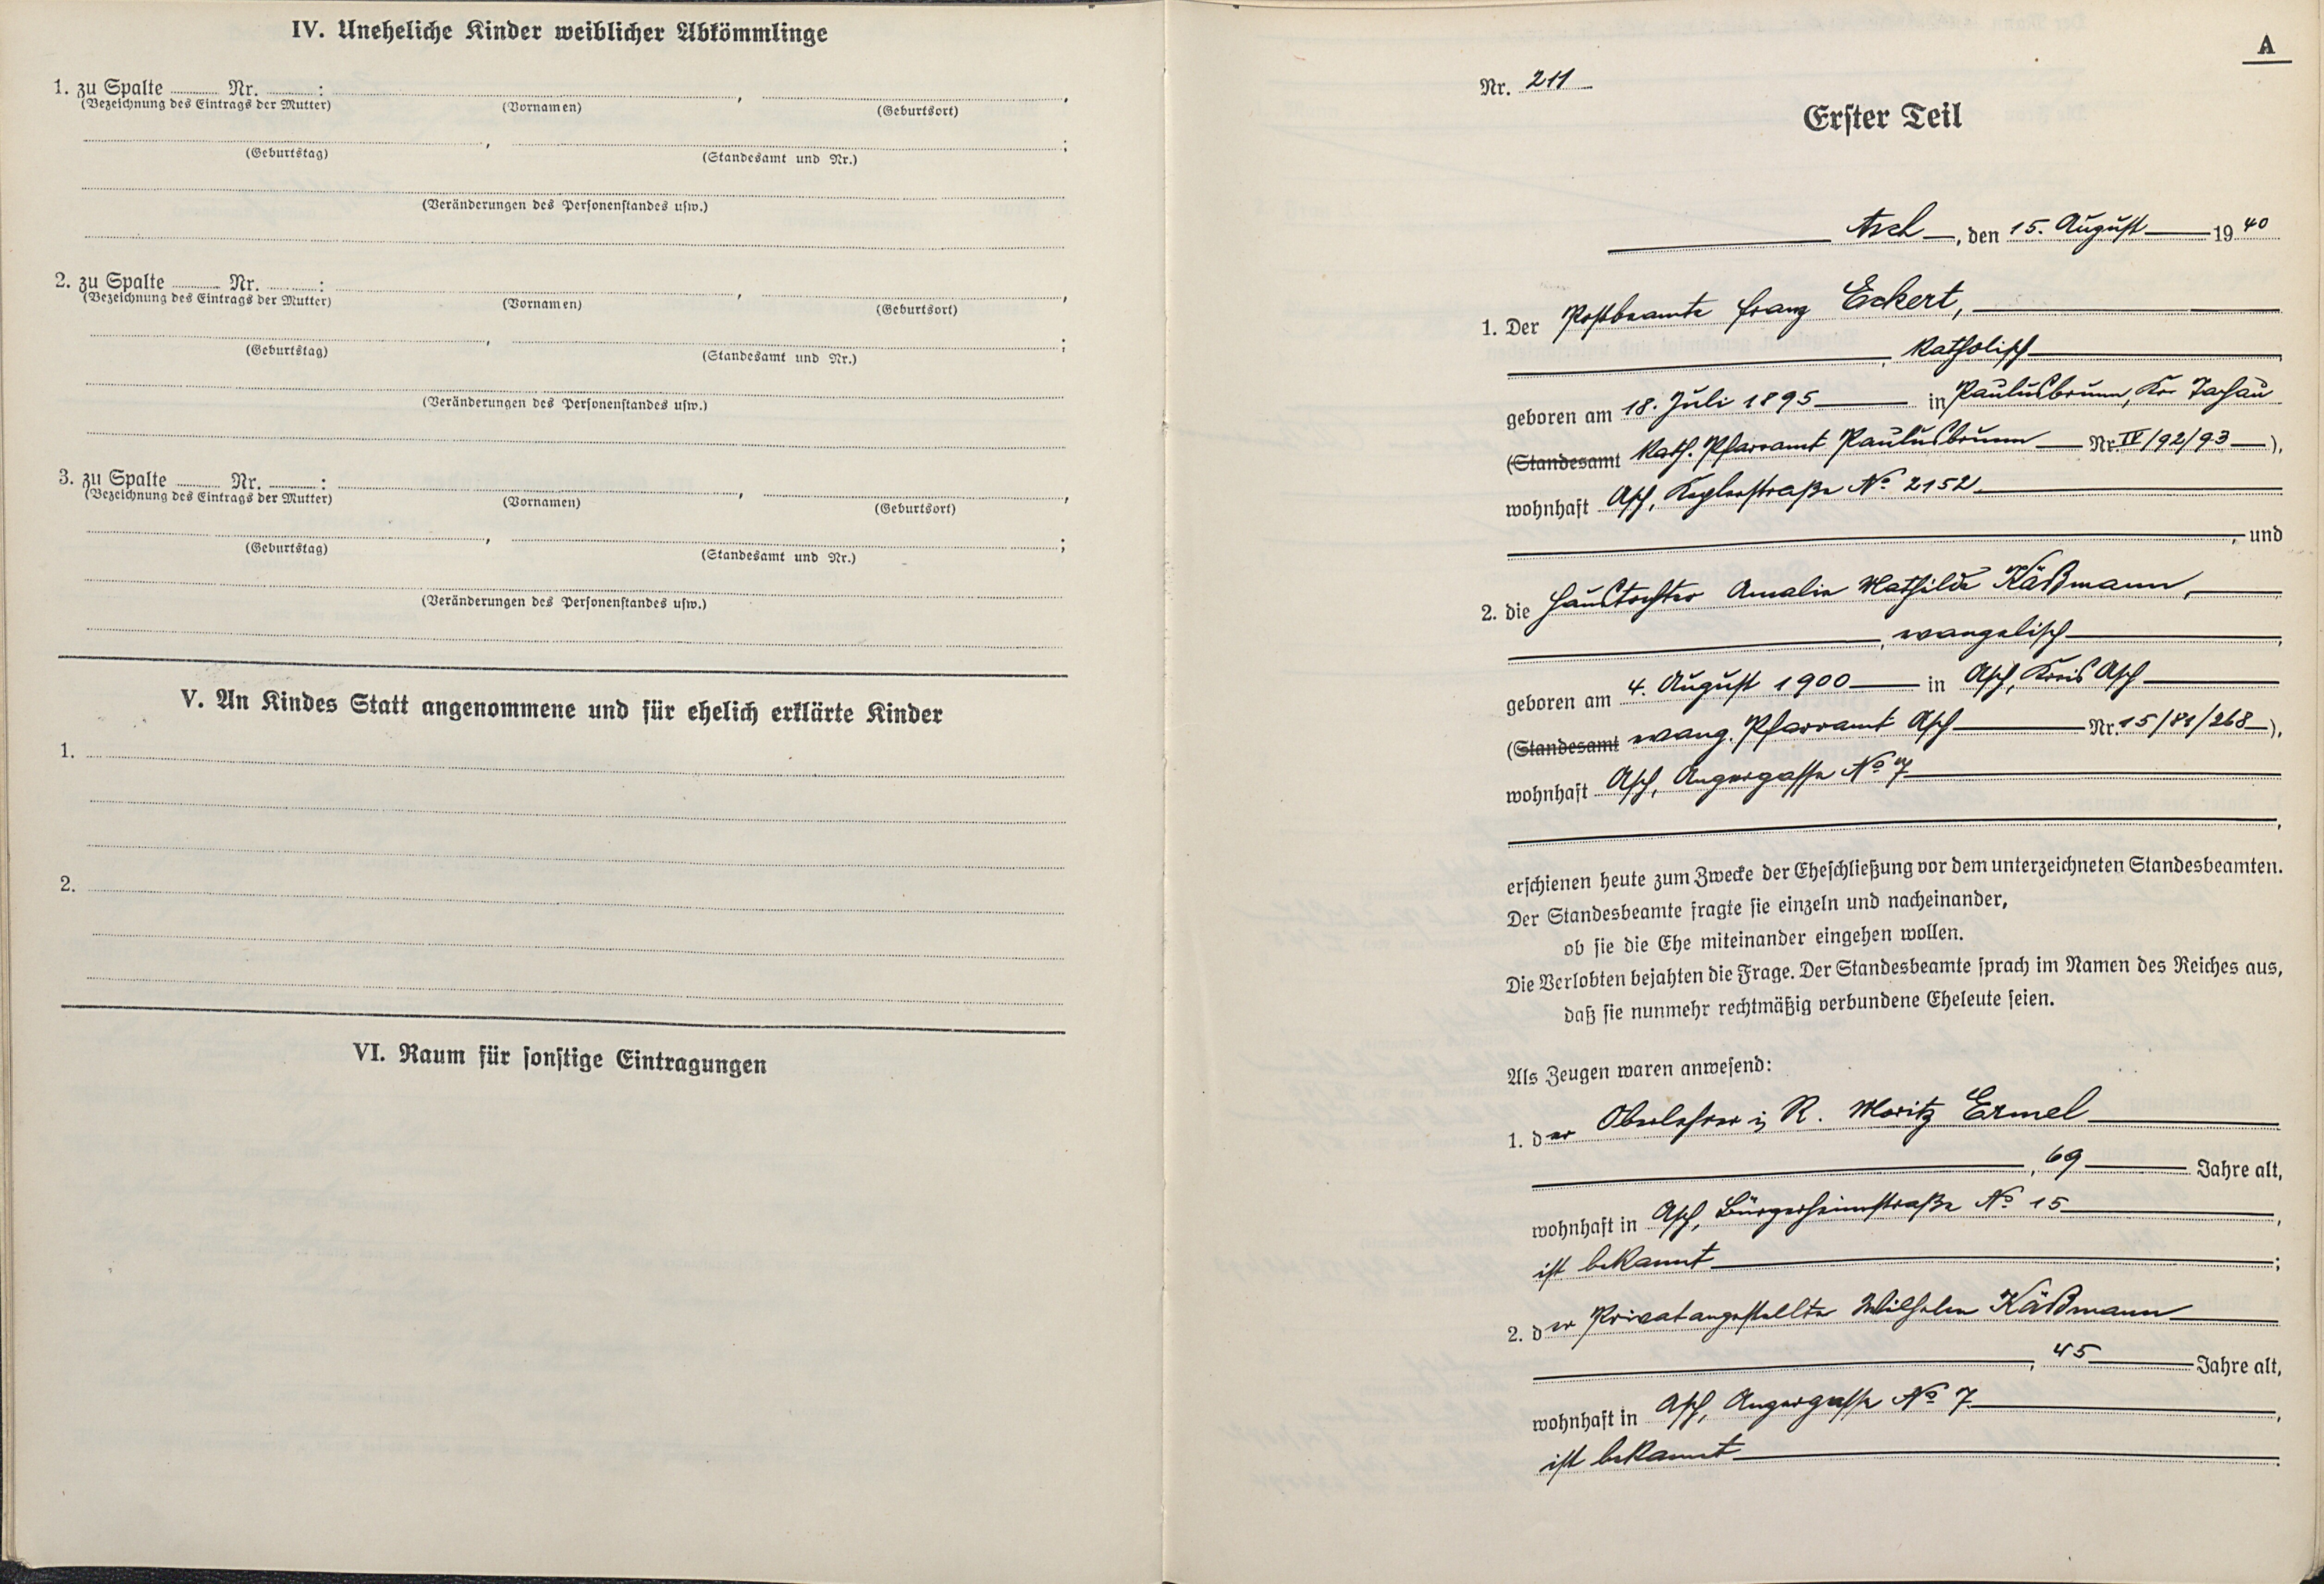 IV. Uneheliche Kinder weiblicher Abkömmlinge
1. zu Spalte ........ Nr. ........ :
(Bezeichnung des Eintrags der Mutter) (Vornamen) , (Geburtsort) ,
(Geburtstag) , (Standesamt und Nr.) ;
(Veränderungen des Personenstandes usw.)
2. zu Spalte ........ Nr. ........ :
(Bezeichnung des Eintrags der Mutter) (Vornamen) , (Geburtsort) ,
(Geburtstag) , (Standesamt und Nr.) ;
(Veränderungen des Personenstandes usw.)
3. zu Spalte ........ Nr. ........ :
(Bezeichnung des Eintrags der Mutter) (Vornamen) , (Geburtsort) ,
(Geburtstag) , (Standesamt und Nr.) ;
(Veränderungen des Personenstandes usw.)
V. An Kindes Statt angenommene und für ehelich erklärte Kinder
1.
2.
VI. Raum für sonstige Eintragungen
A
Nr. 211
Erster Teil
Asch, den 15. August 1940
1. Der Postbeamte Franz Eckert,
, katholisch
geboren am 18. Juli 1895 in Paulusbrunn, Kr. Tachau
(Standesamt Kath. Pfarramt Paulusbrunn Nr. IV/92/93),
wohnhaft Asch, Keglerstraße No. 2152
, und
2. die Haustochter Amalie Mathilde Käßmann,
, evangelisch,
geboren am 4. August 1900 in Asch, Kreis Asch
(Standesamt evang. Pfarramt Asch Nr. 15/81/268),
wohnhaft Asch, Angergasse No. 7
,
erschienen heute zum Zwecke der Eheschließung vor dem unterzeichneten Standesbeamten.
Der Standesbeamte fragte sie einzeln und nacheinander,
ob sie die Ehe miteinander eingehen wollen.
Die Verlobten bejahten die Frage. Der Standesbeamte sprach im Namen des Reiches aus,
daß sie nunmehr rechtmäßig verbundene Eheleute seien.
Als Zeugen waren anwesend:
1. der Oberlehrer i. R. Moritz Ermel
, 69 Jahre alt,
wohnhaft in Asch, Bürgerheimstraße No. 15,
ist bekannt;
2. der Privatangestellte Wilhelm Käßmann
, 45 Jahre alt,
wohnhaft in Asch, Angergasse No. 7,
ist bekannt.